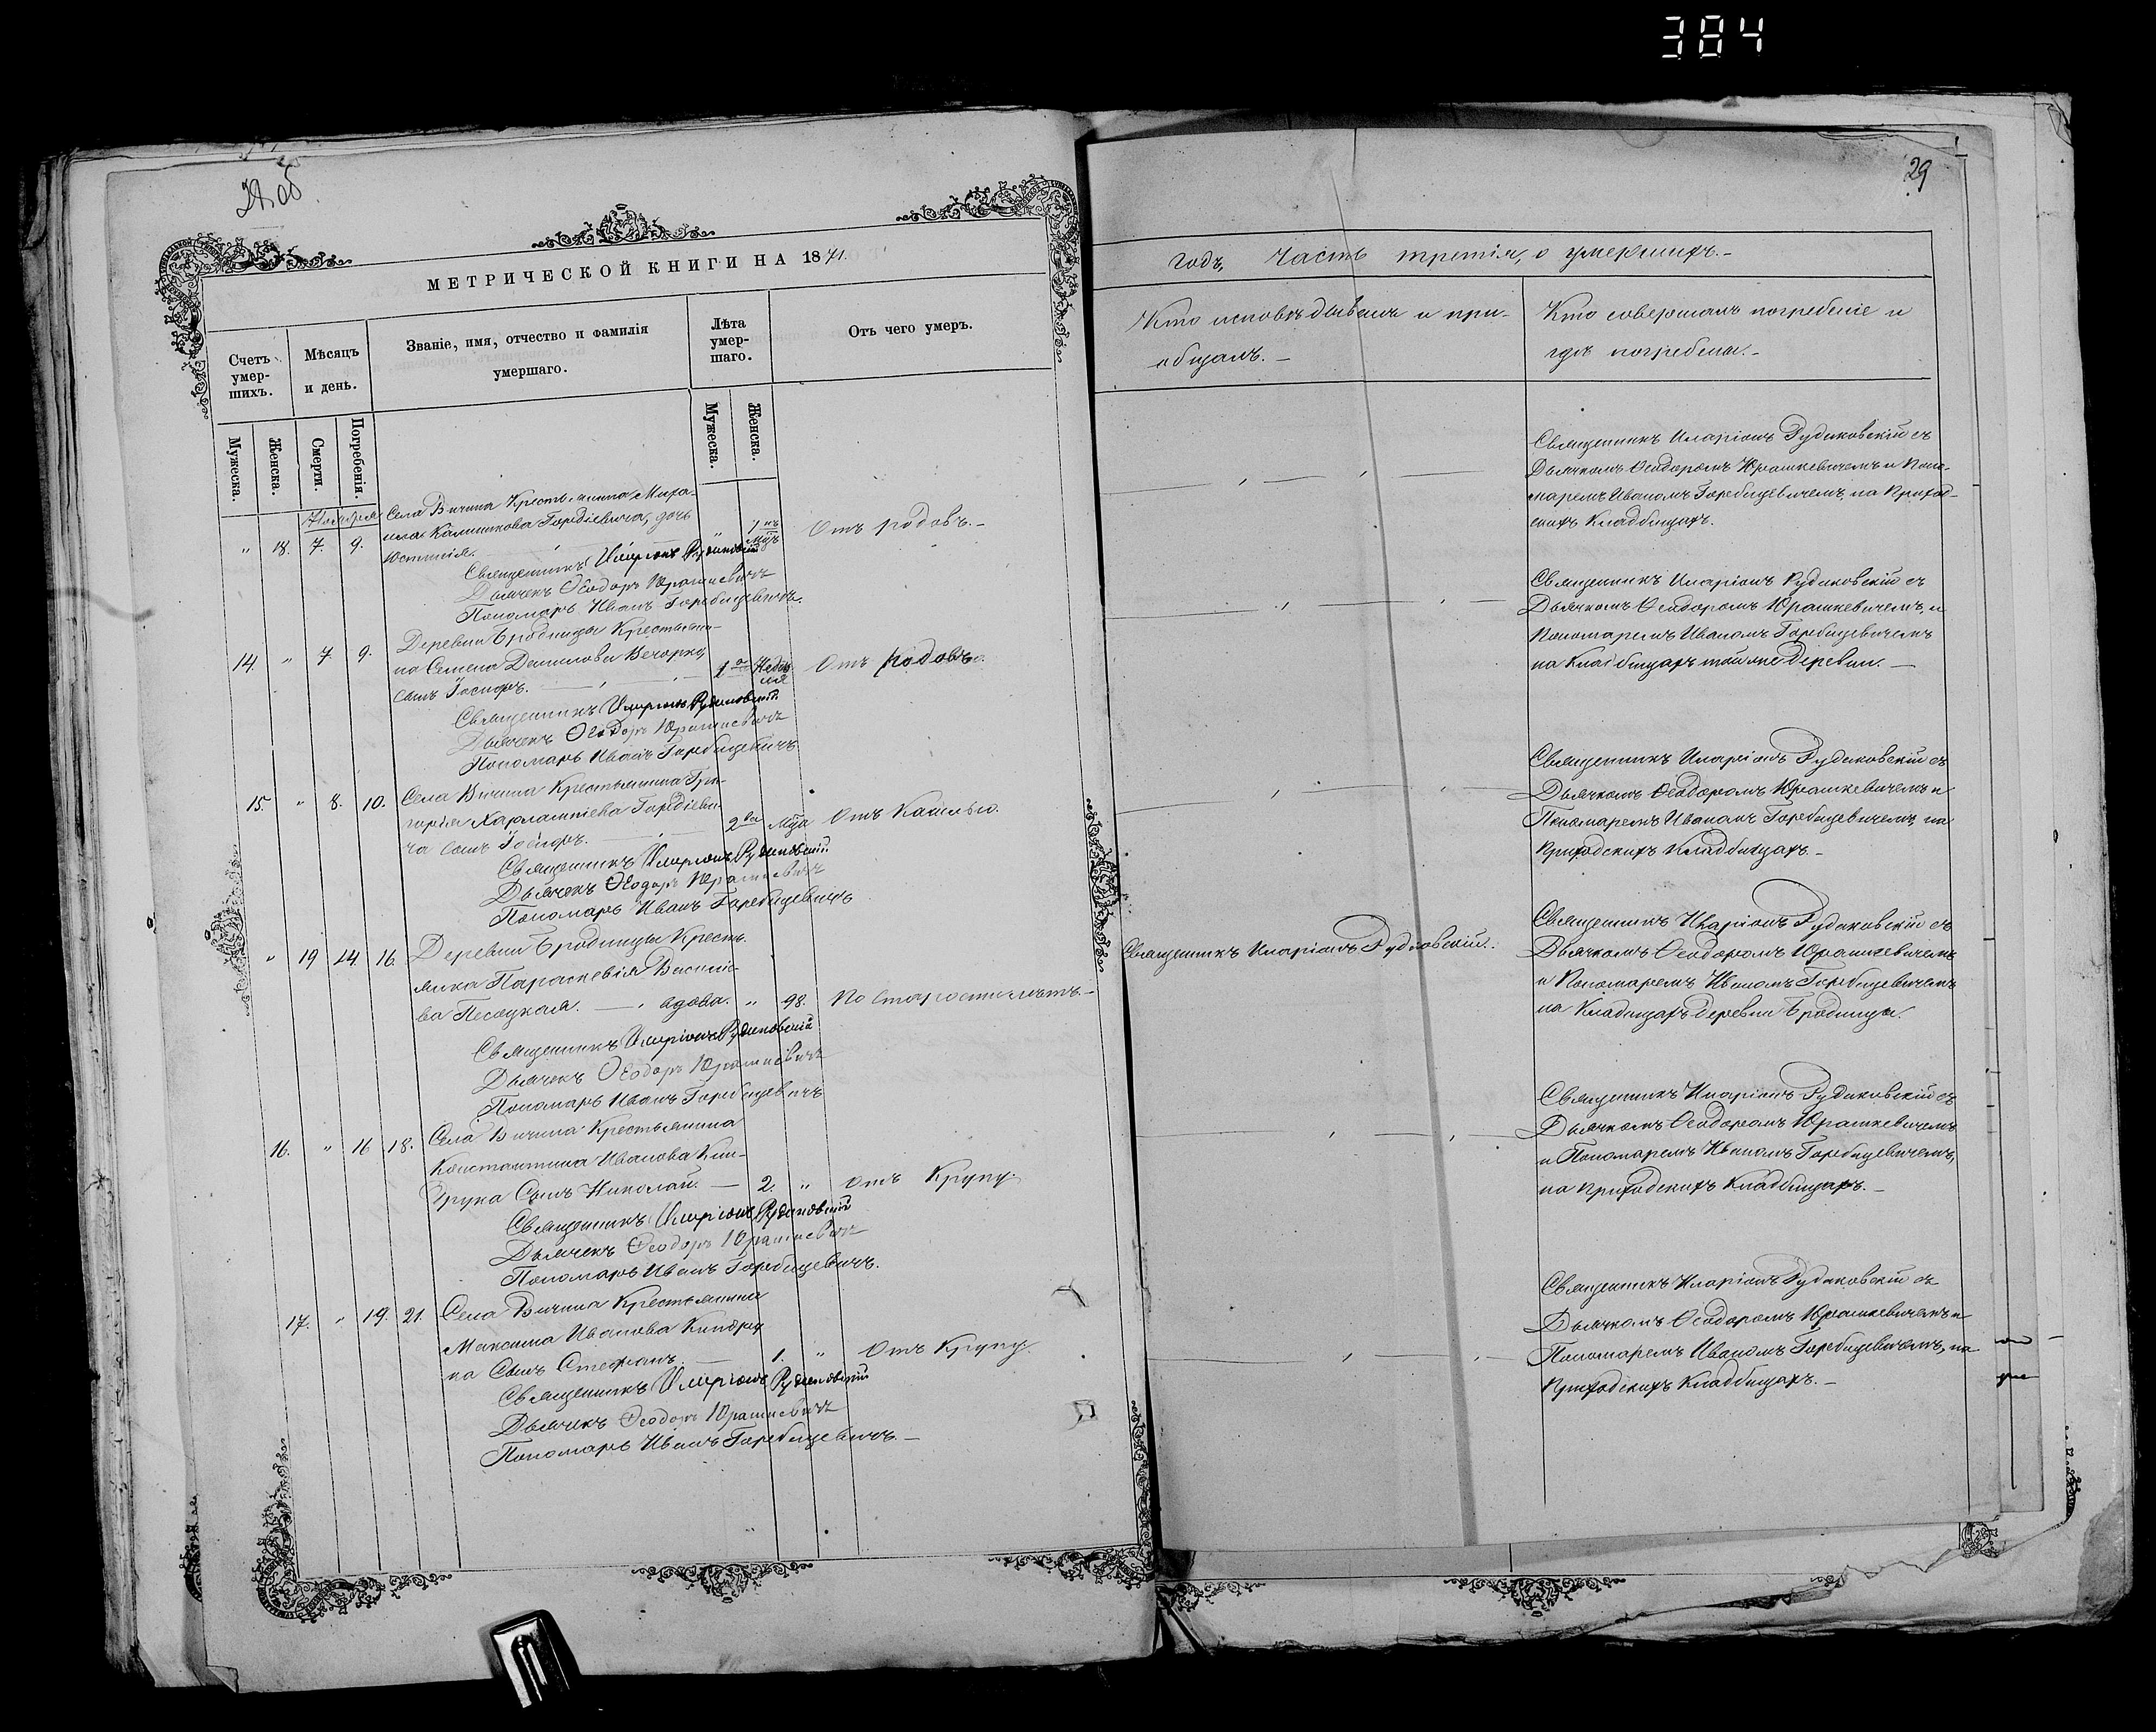 384
29
МЕТРИЧЕСКОЙ КНИГИ НА 1871.
годъ, часть третія, о умершихъ.-
Счетъ умер- шихъ.
Мѣсяцъ и день.
Званіе, имя, отчество и фамилія умершаго.
Лѣта умер- шаго.
Отъ чего умеръ.
Кто исповѣдывалъ и при-
общалъ.-
Кто совершалъ погребеніе и
гдѣ погребены.-
Мужеска.
Женска.
Смерти.
Погребенія.
Мужеска.
Женска.
Ноября
Села Вичина Крестьянина Миха-
ила Калинникова Гордіевича, дочь
" 18. 7. 9. Юстинія. " 1 мцъ Отъ родовъ.-
Священникъ Иларіонъ Рудиковскій
Дьячекъ Ѳеодоръ Юрашкевичъ
Пономарь Иванъ Горебицевичъ.
Священникъ Иларіонъ Рудиковскій съ
Дьячкомъ Ѳеодоромъ Юрашкевичемъ и Поно-
маремъ Иваномъ Горебицевичемъ, на Приход-
скихъ Кладбищахъ.
Деревни Бродницы Крестьяни-
14 " 7. 9. на Семена Данилова Вечорко,
сынъ Іосифъ. 1 Недѣля Отъ родовъ.
Священникъ Иларіонъ Рудиковскій
Дьячекъ Ѳеодоръ Юрашкевичъ
Пономарь Иванъ Горебицевичъ
Священникъ Иларіонъ Рудиковскій съ
Дьячкомъ Ѳеодоромъ Юрашкевичемъ, и
Пономаремъ Иваномъ Горебицевичемъ
на Кладбищахъ той же деревни.-
15. " 8. 10. Села Вичина Крестьянина Гри-
горія Харлампіева Гордіеви-
ча сынъ Іосифъ. 2 мца Отъ Кашлю.
Священникъ Иларіонъ Рудиковскій
Дьячекъ Ѳеодоръ Юрашкевичъ
Пономарь Иванъ Горебицевичъ
Священникъ Иларіонъ Рудиковскій съ
Дьячкомъ Ѳеодоромъ Юрашкевичемъ и
Пономаремъ Иваномъ Горебицевичемъ, на
Приходскихъ Кладбищахъ.-
" 19 14. 16. Деревни Бродницы Кресть-
янка Параскевія Василіе-
ва Песоцкая. вдова. " 98. По Старости лѣтъ.-
Священникъ Иларіонъ Рудиковскій
Дьячекъ Ѳеодоръ Юрашкевичъ
Пономарь Иванъ Горебицевичъ
Священникъ Иларіонъ Рудиковскій.
Священникъ Иларіонъ Рудиковскій съ
Дьячкомъ Ѳеодоромъ Юрашкевичемъ
и Пономаремъ Иваномъ Горебицевичемъ
на Кладищахъ деревни Бродницы.
16. " 16 18. Села Вичина Крестьянина
Константина Иванова Кин-
друка Сынъ Николай. 2. " Отъ Крупу
Священникъ Иларіонъ Рудиковскій
Дьячекъ Ѳеодоръ Юрашкевичъ
Пономарь Иванъ Горебицевичъ.
Священникъ Иларіонъ Рудиковскій съ
Дьячкомъ Ѳеодоромъ Юрашкевичемъ
и Пономаремъ Иваномъ Горебицевичемъ,
на Приходскихъ Кладбищахъ.-
17. " 19. 21. Села Вичина Крестьянина
Максима Иванова Киндру-
ка Сынъ Стефанъ. 1. " Отъ Крупу.
Священникъ Иларіонъ Рудиковскій
Дьячекъ Ѳеодоръ Юрашкевичъ
Пономарь Иванъ Горебицевичъ.-
Священникъ Иларіонъ Рудиковскій съ
Дьячкомъ Ѳеодоромъ Юрашкевичемъ и
Пономаремъ Иваномъ Горебицевичемъ, на
Приходскихъ Кладбищахъ.-